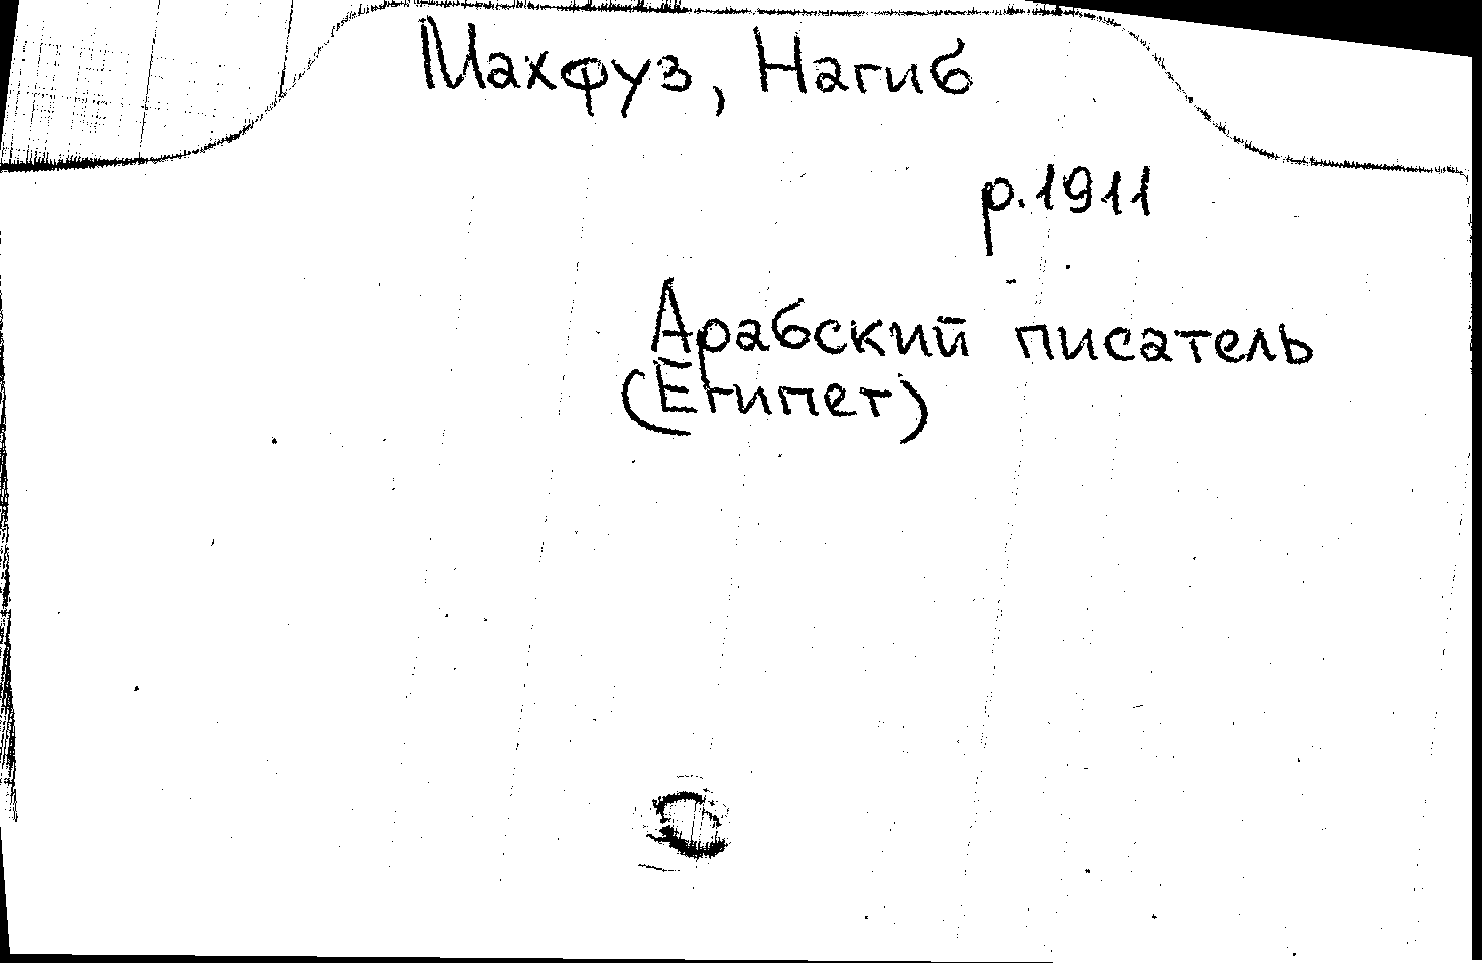 Махфуз, Нагиб
р. 1911
Арабский писатель
(Египет)